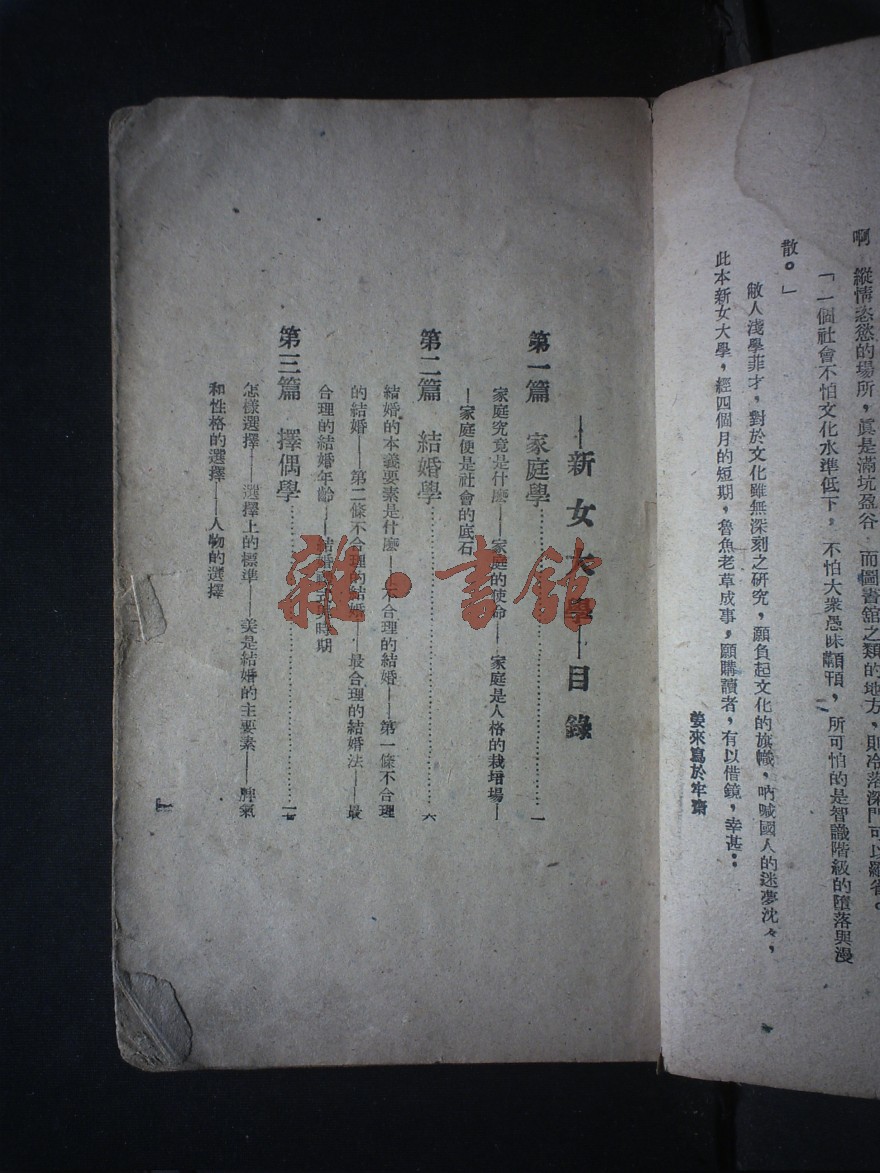 啊 縱情恣慾的場所，眞是滿坑盈谷 而圖書舘之類的地方，則冷落深門可以羅雀。
「一個社會不怕文化水準低下，不怕大衆愚昧顢頇，所可怕的是智識階級的墮落與漫
散。」
敝人淺學菲才，對於文化雖無深刻之硏究，願負起文化的旗幟，吶喊國人的迷夢沈々，
此本新女大學，經四個月的短期，魯魚老草成事，願購讀者，有以借鏡，幸甚：
姜來寫於牢齋
——新女大學——目錄
第一篇 家庭學…………一
家庭究竟是什麽——家庭的使命——家庭是人格的栽培場—
—家庭便是社會的底石
第二篇 結婚學…………六
結婚的本義要素是什麽——不合理的結婚——第一條不合理
的結婚——第二條不合理的結婚——最合理的結婚法——最
合理的結婚年齡——結婚 時期
第三篇 擇偶學…………一七
怎樣選擇——選擇上的標準——美是結婚的主要素——脾氣
和性格的選擇——人物的選擇
一
雜·書館